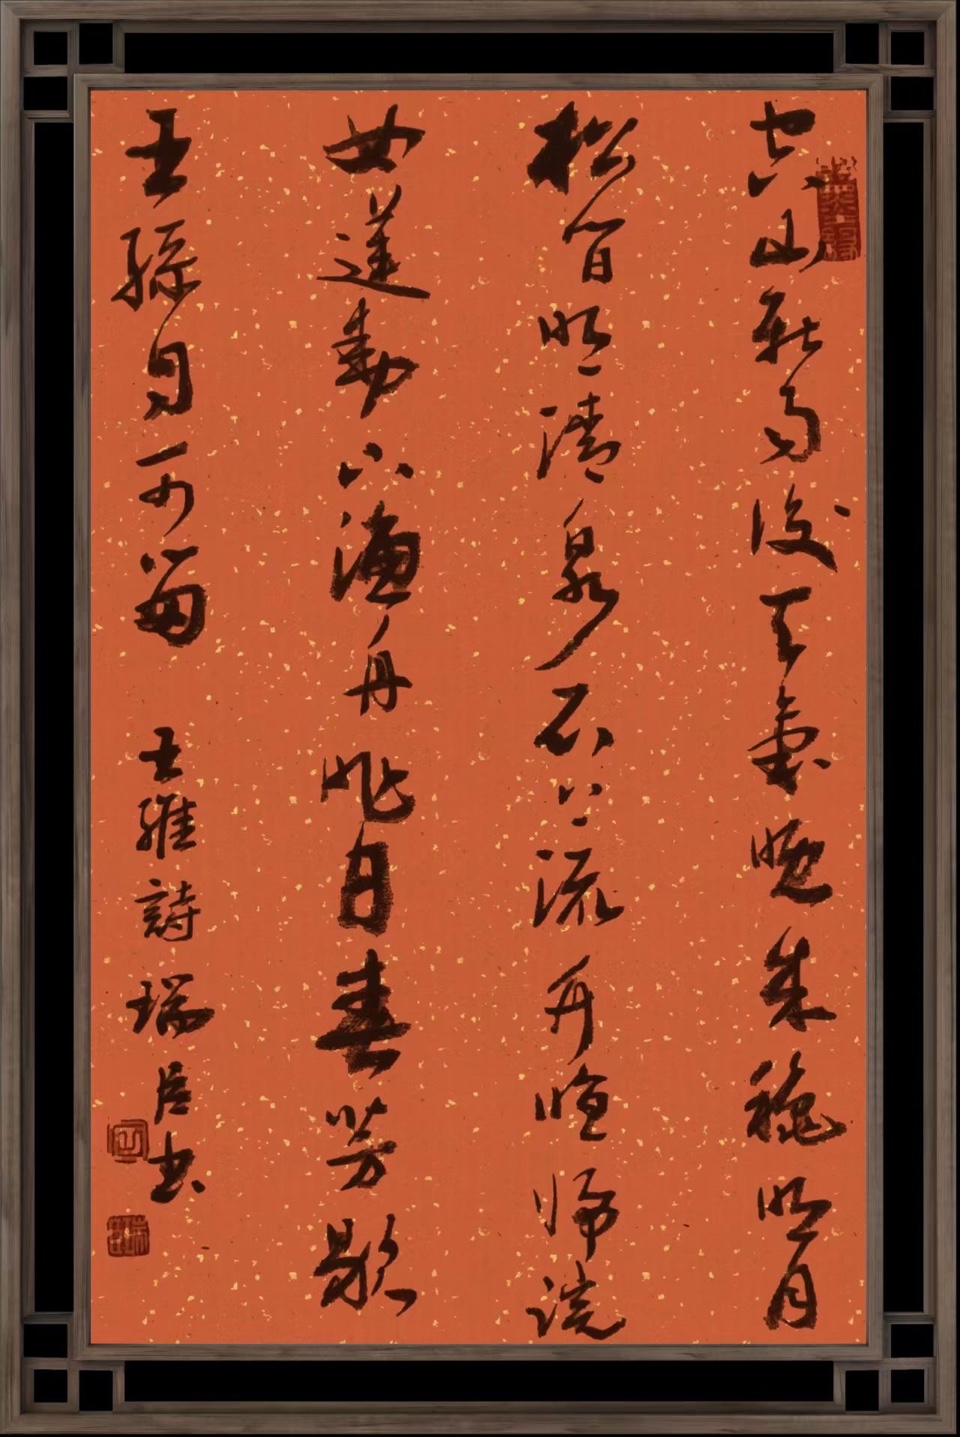 空山新雨後天氣晚來穐明月
松間照清泉石上流竹喧歸浣
女蓮動下漁舟日春芳歇
王孫自可留 王維詩 瑞書